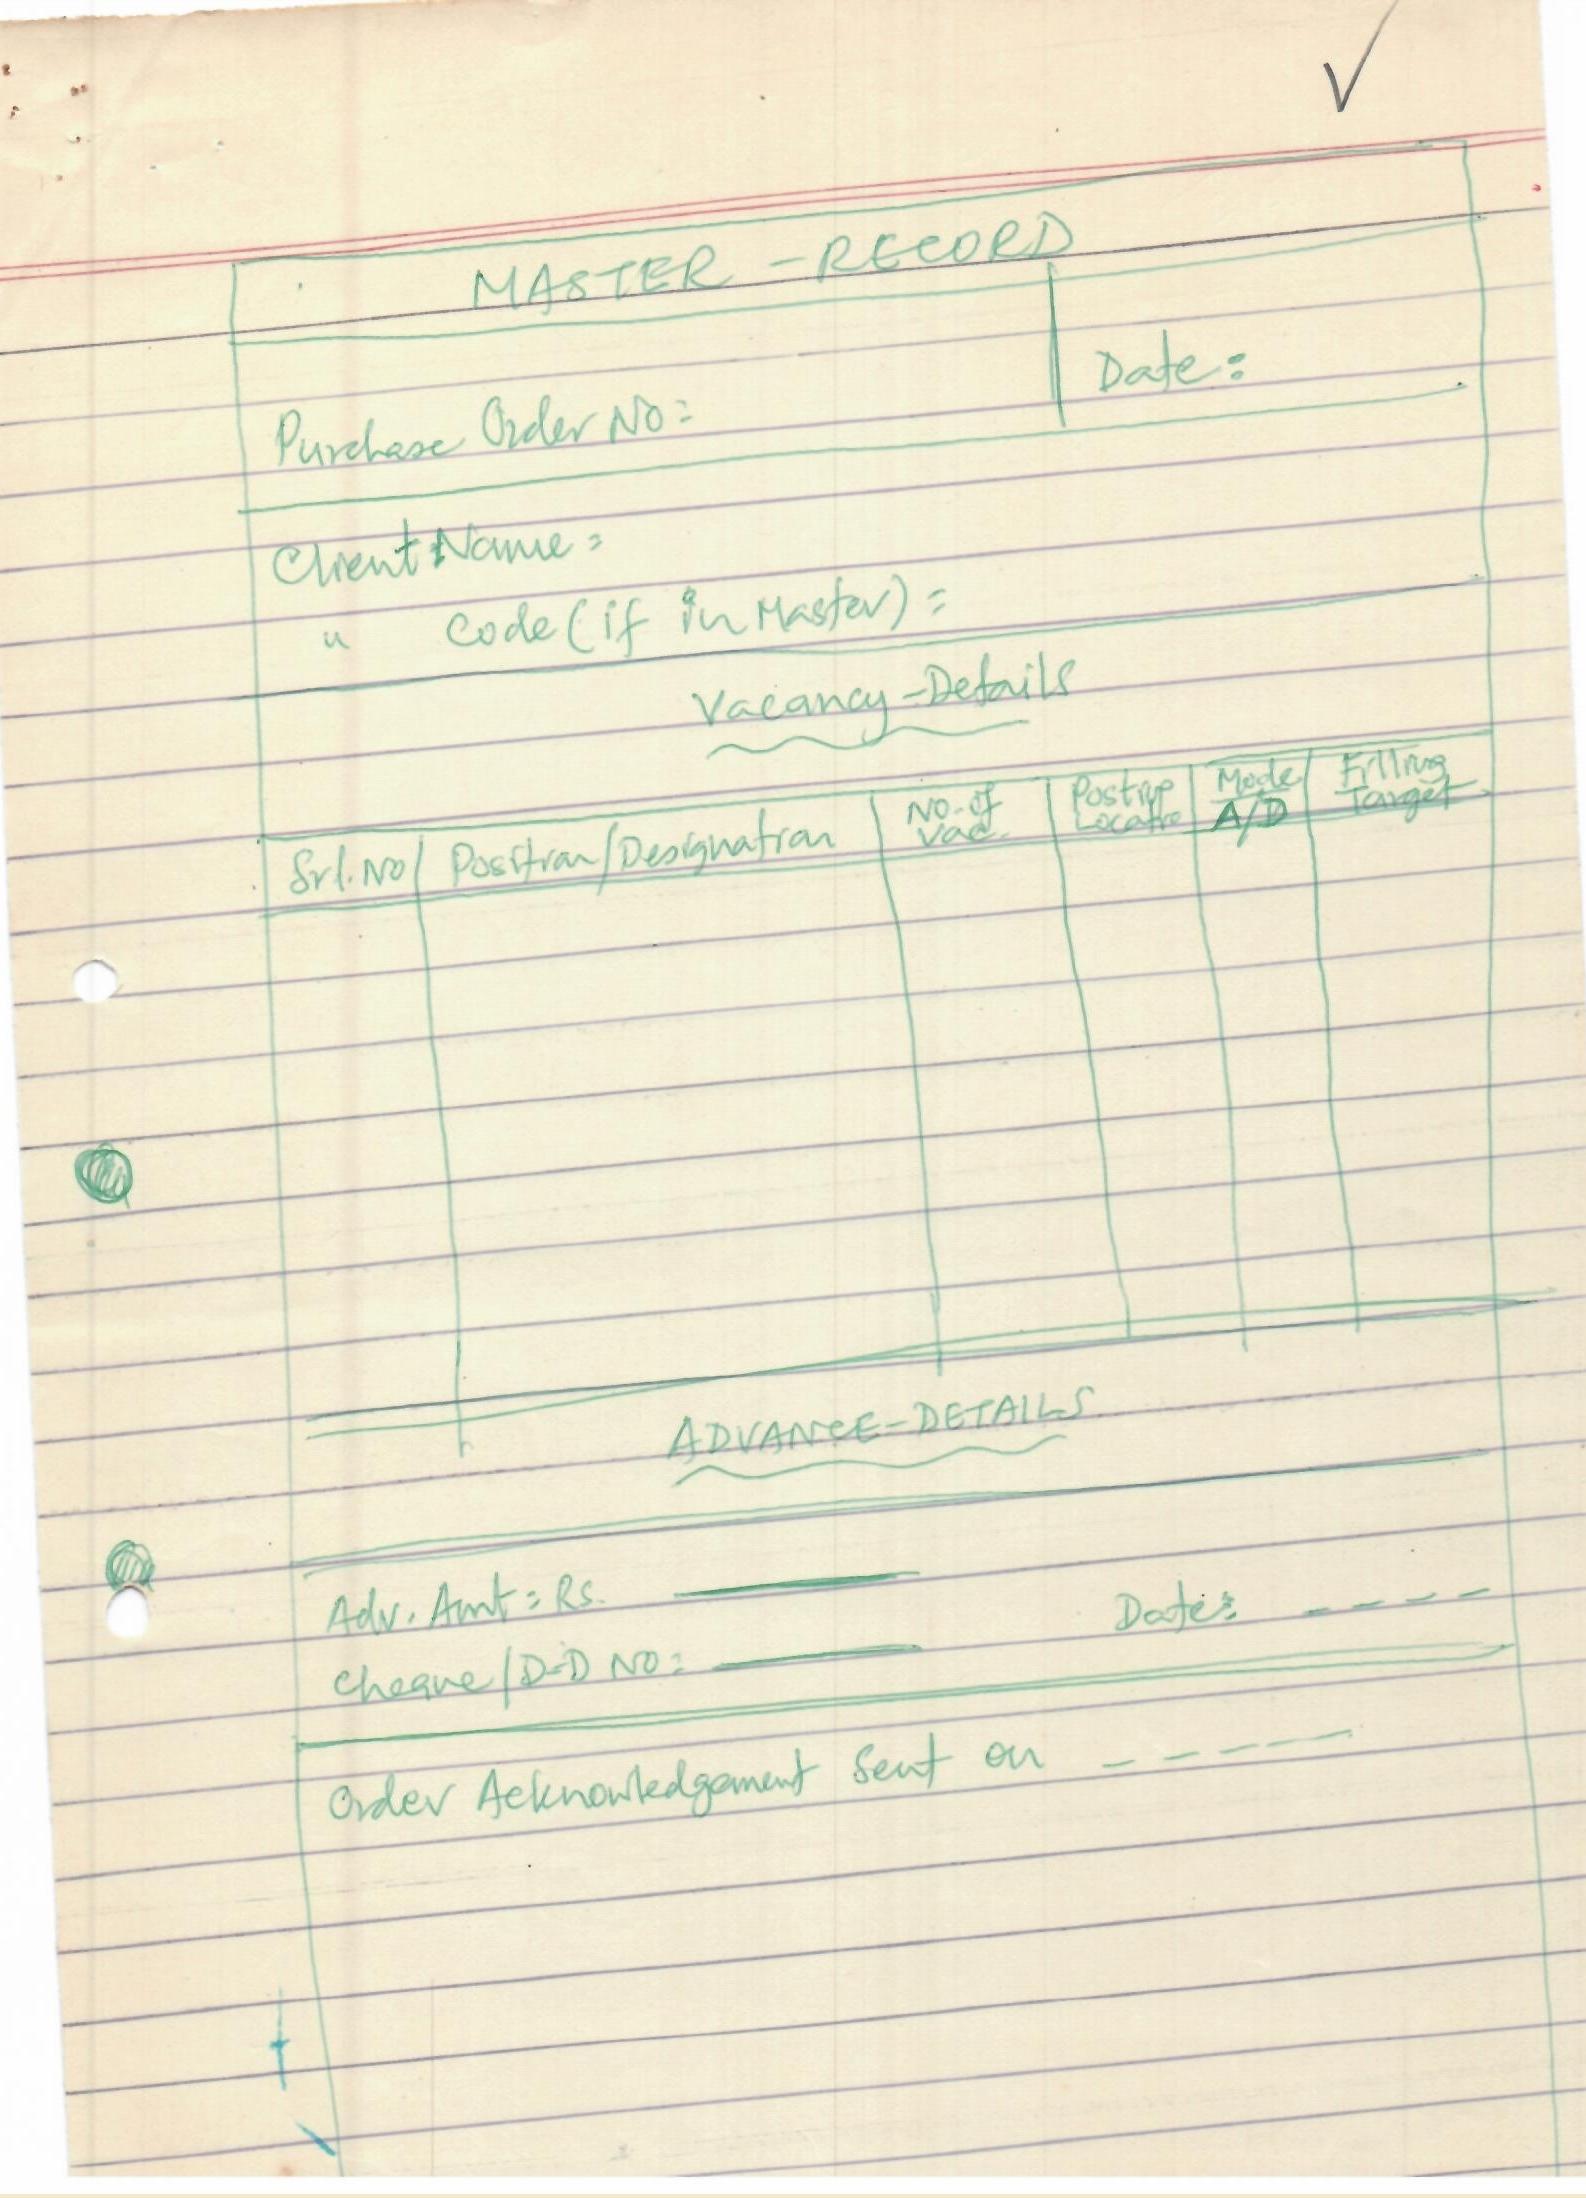 MASTER - RECORD
Purchase Order No: Date:
Client Name:
" Code (if in Master) :
Vacancy-Details
Srl. No Position/Designation No. of Vac. Posting Location Mode A/D Filling Target
ADVANCE-DETAILS
Adv. Amt: Rs. Date: - - - -
Cheque/D.D No:
Order Acknowledgement Sent on - - - - -